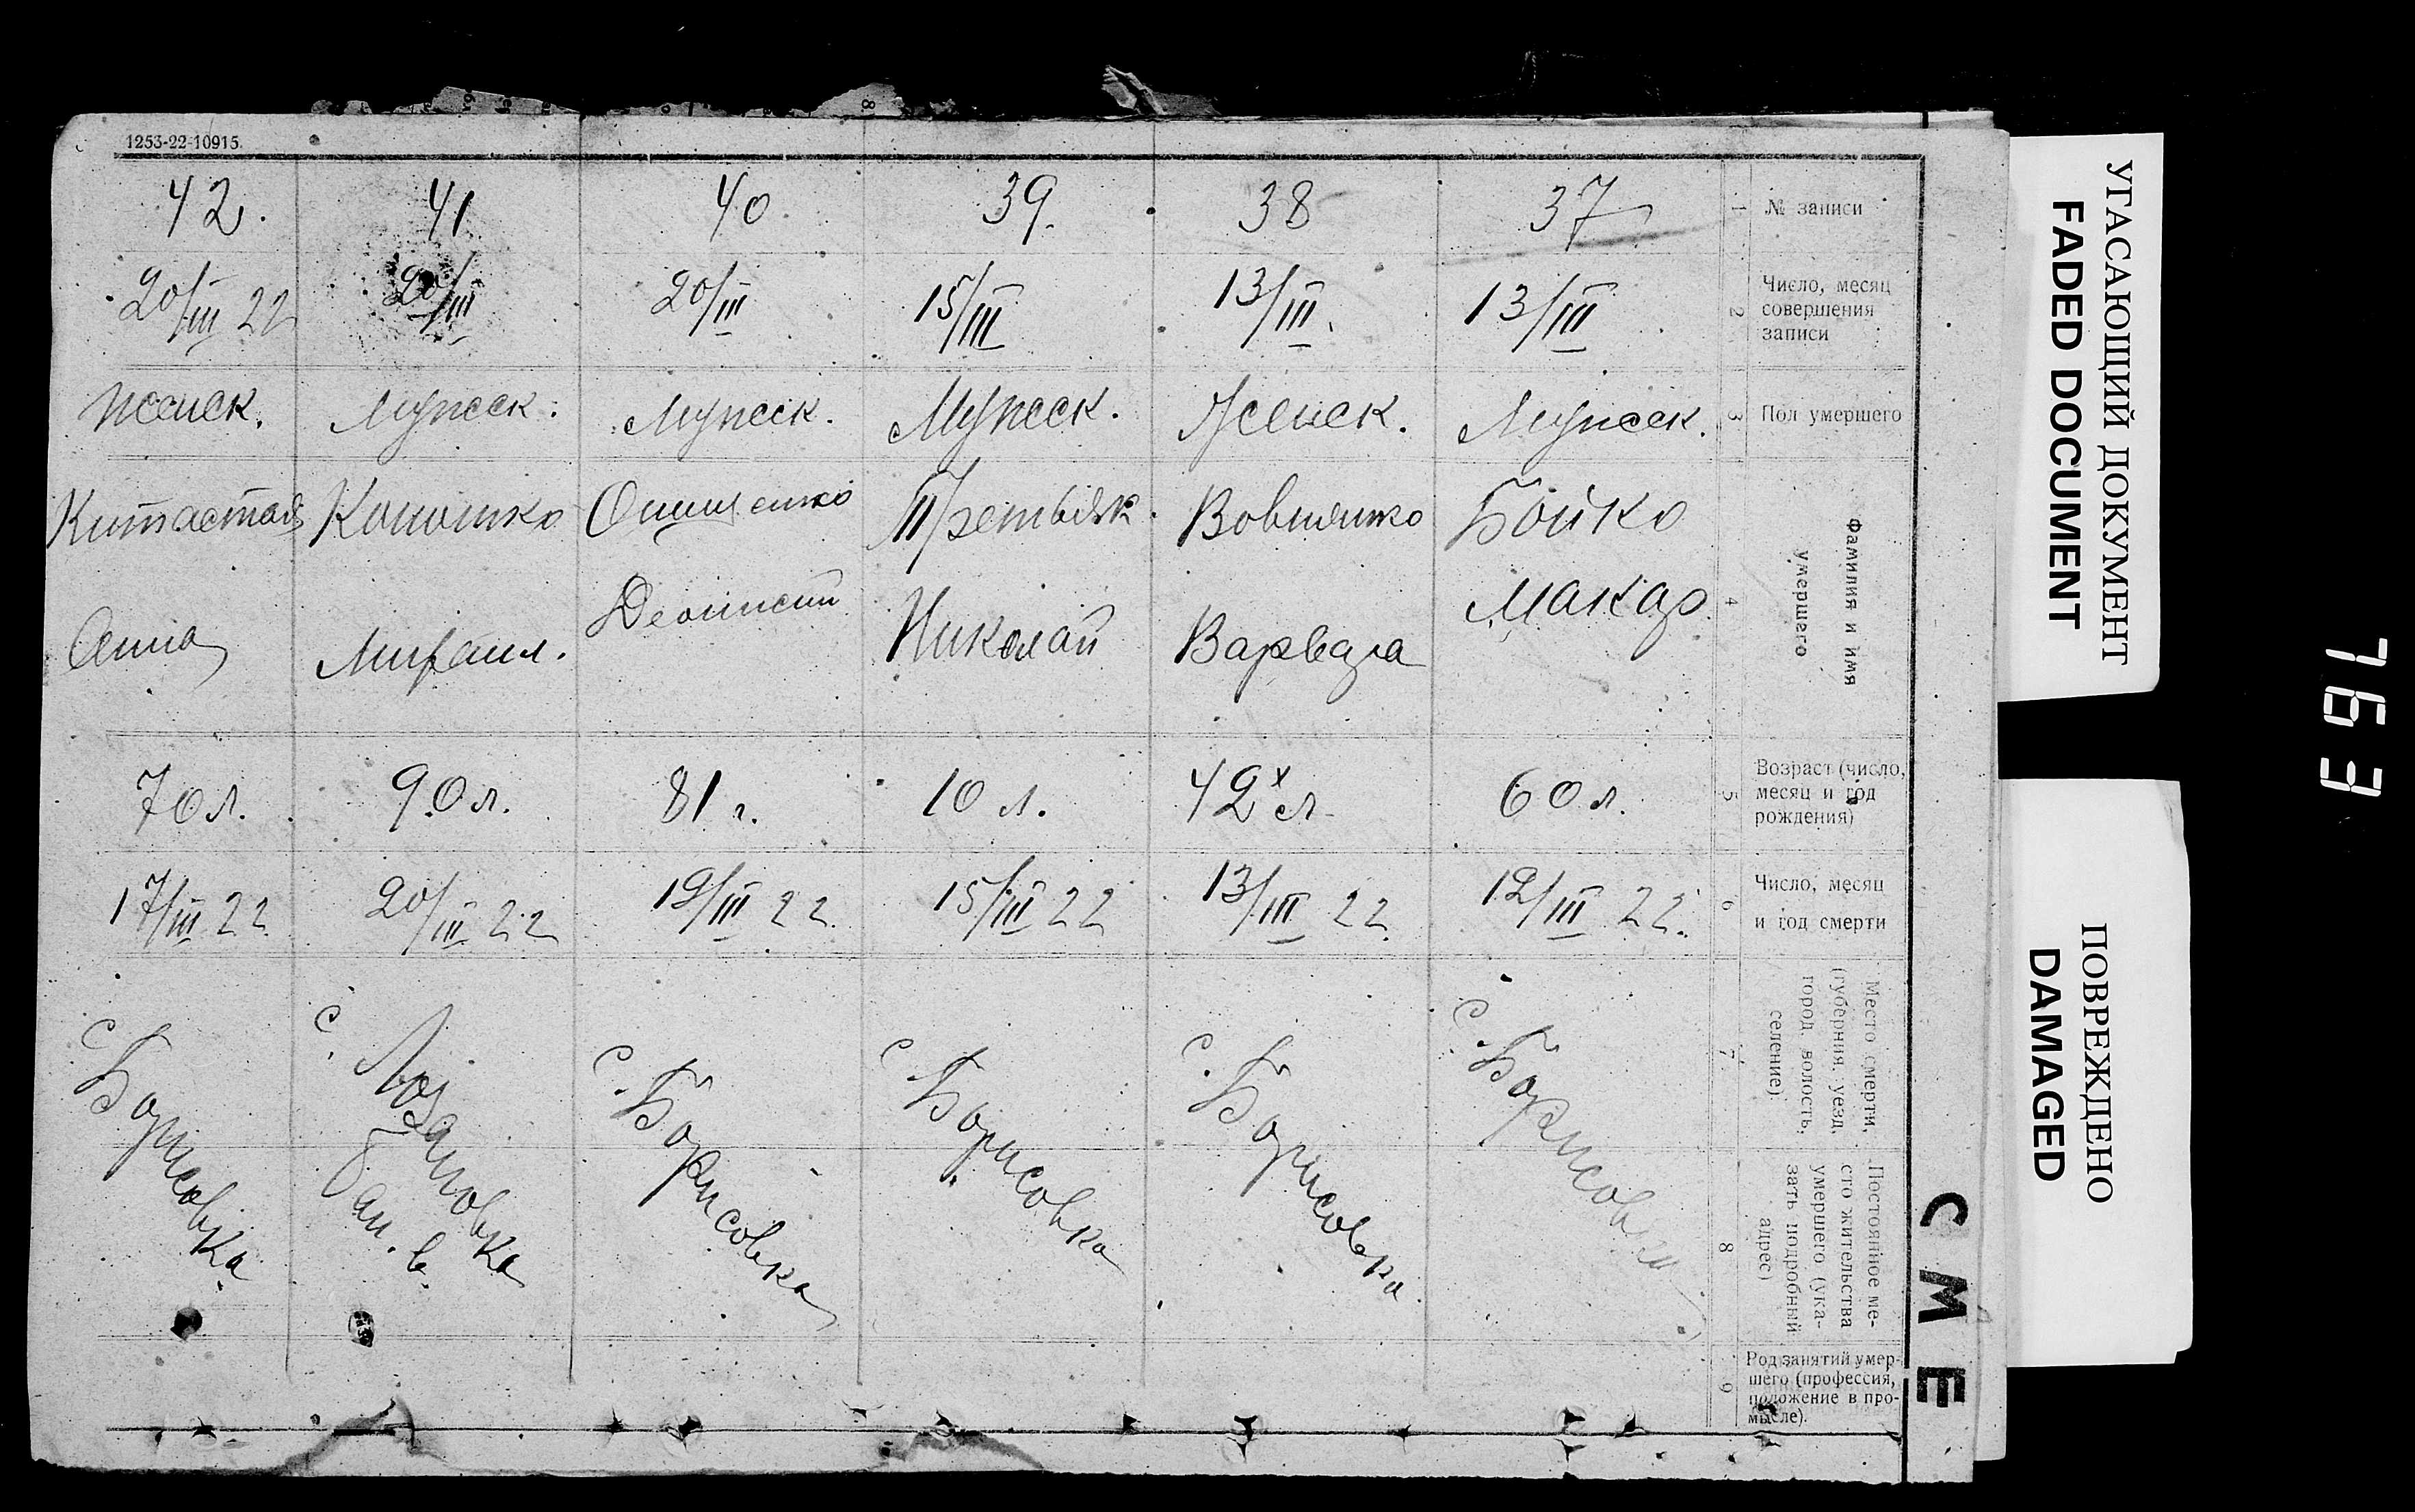 1253-22-10915.
42. 41 40 39. 38 37 1 № записи
20/III 22 20/III 20/III 15/III 13/III. 13/III 2 Число, месяц
совершения
записи
женск. мужеск. Мужеск. Мужеск. Женск. Мужеск. 3 Пол умершего
Китастая Кононко Онищенко Третьяк Вовнянко Бойко 4 Фамилия и имя
умершего
Анна Михаил. Деонисий Николай Варвара Макар
70 л. 90 л. 81 г. 10 л. 42х л. 60 л. 5 Возраст (число,
месяц и год
рождения)
17/III 22 20/III 22 19/III 22 15/III 22 13/III 22 12/III 22. 6 Число, месяц
и год смерти
с. Борисовка с. Лозановка с. Борисовка с. Борисовка с. Борисовка с. Борисовка
Бан. в.
7 Место смерти,
(губерния, уезд,
город, волость,
селение)
8 Постоянное ме-
сто жительства
умершего (ука-
зать подробный
адрес)
9 Род занятий умер-
шего (профессия,
положение в про-
мысле).
СМЕ
УГАСАЮЩИЙ ДОКУМЕНТ
FADED DOCUMENT
ПОВРЕЖДЕНО
DAMAGED
793